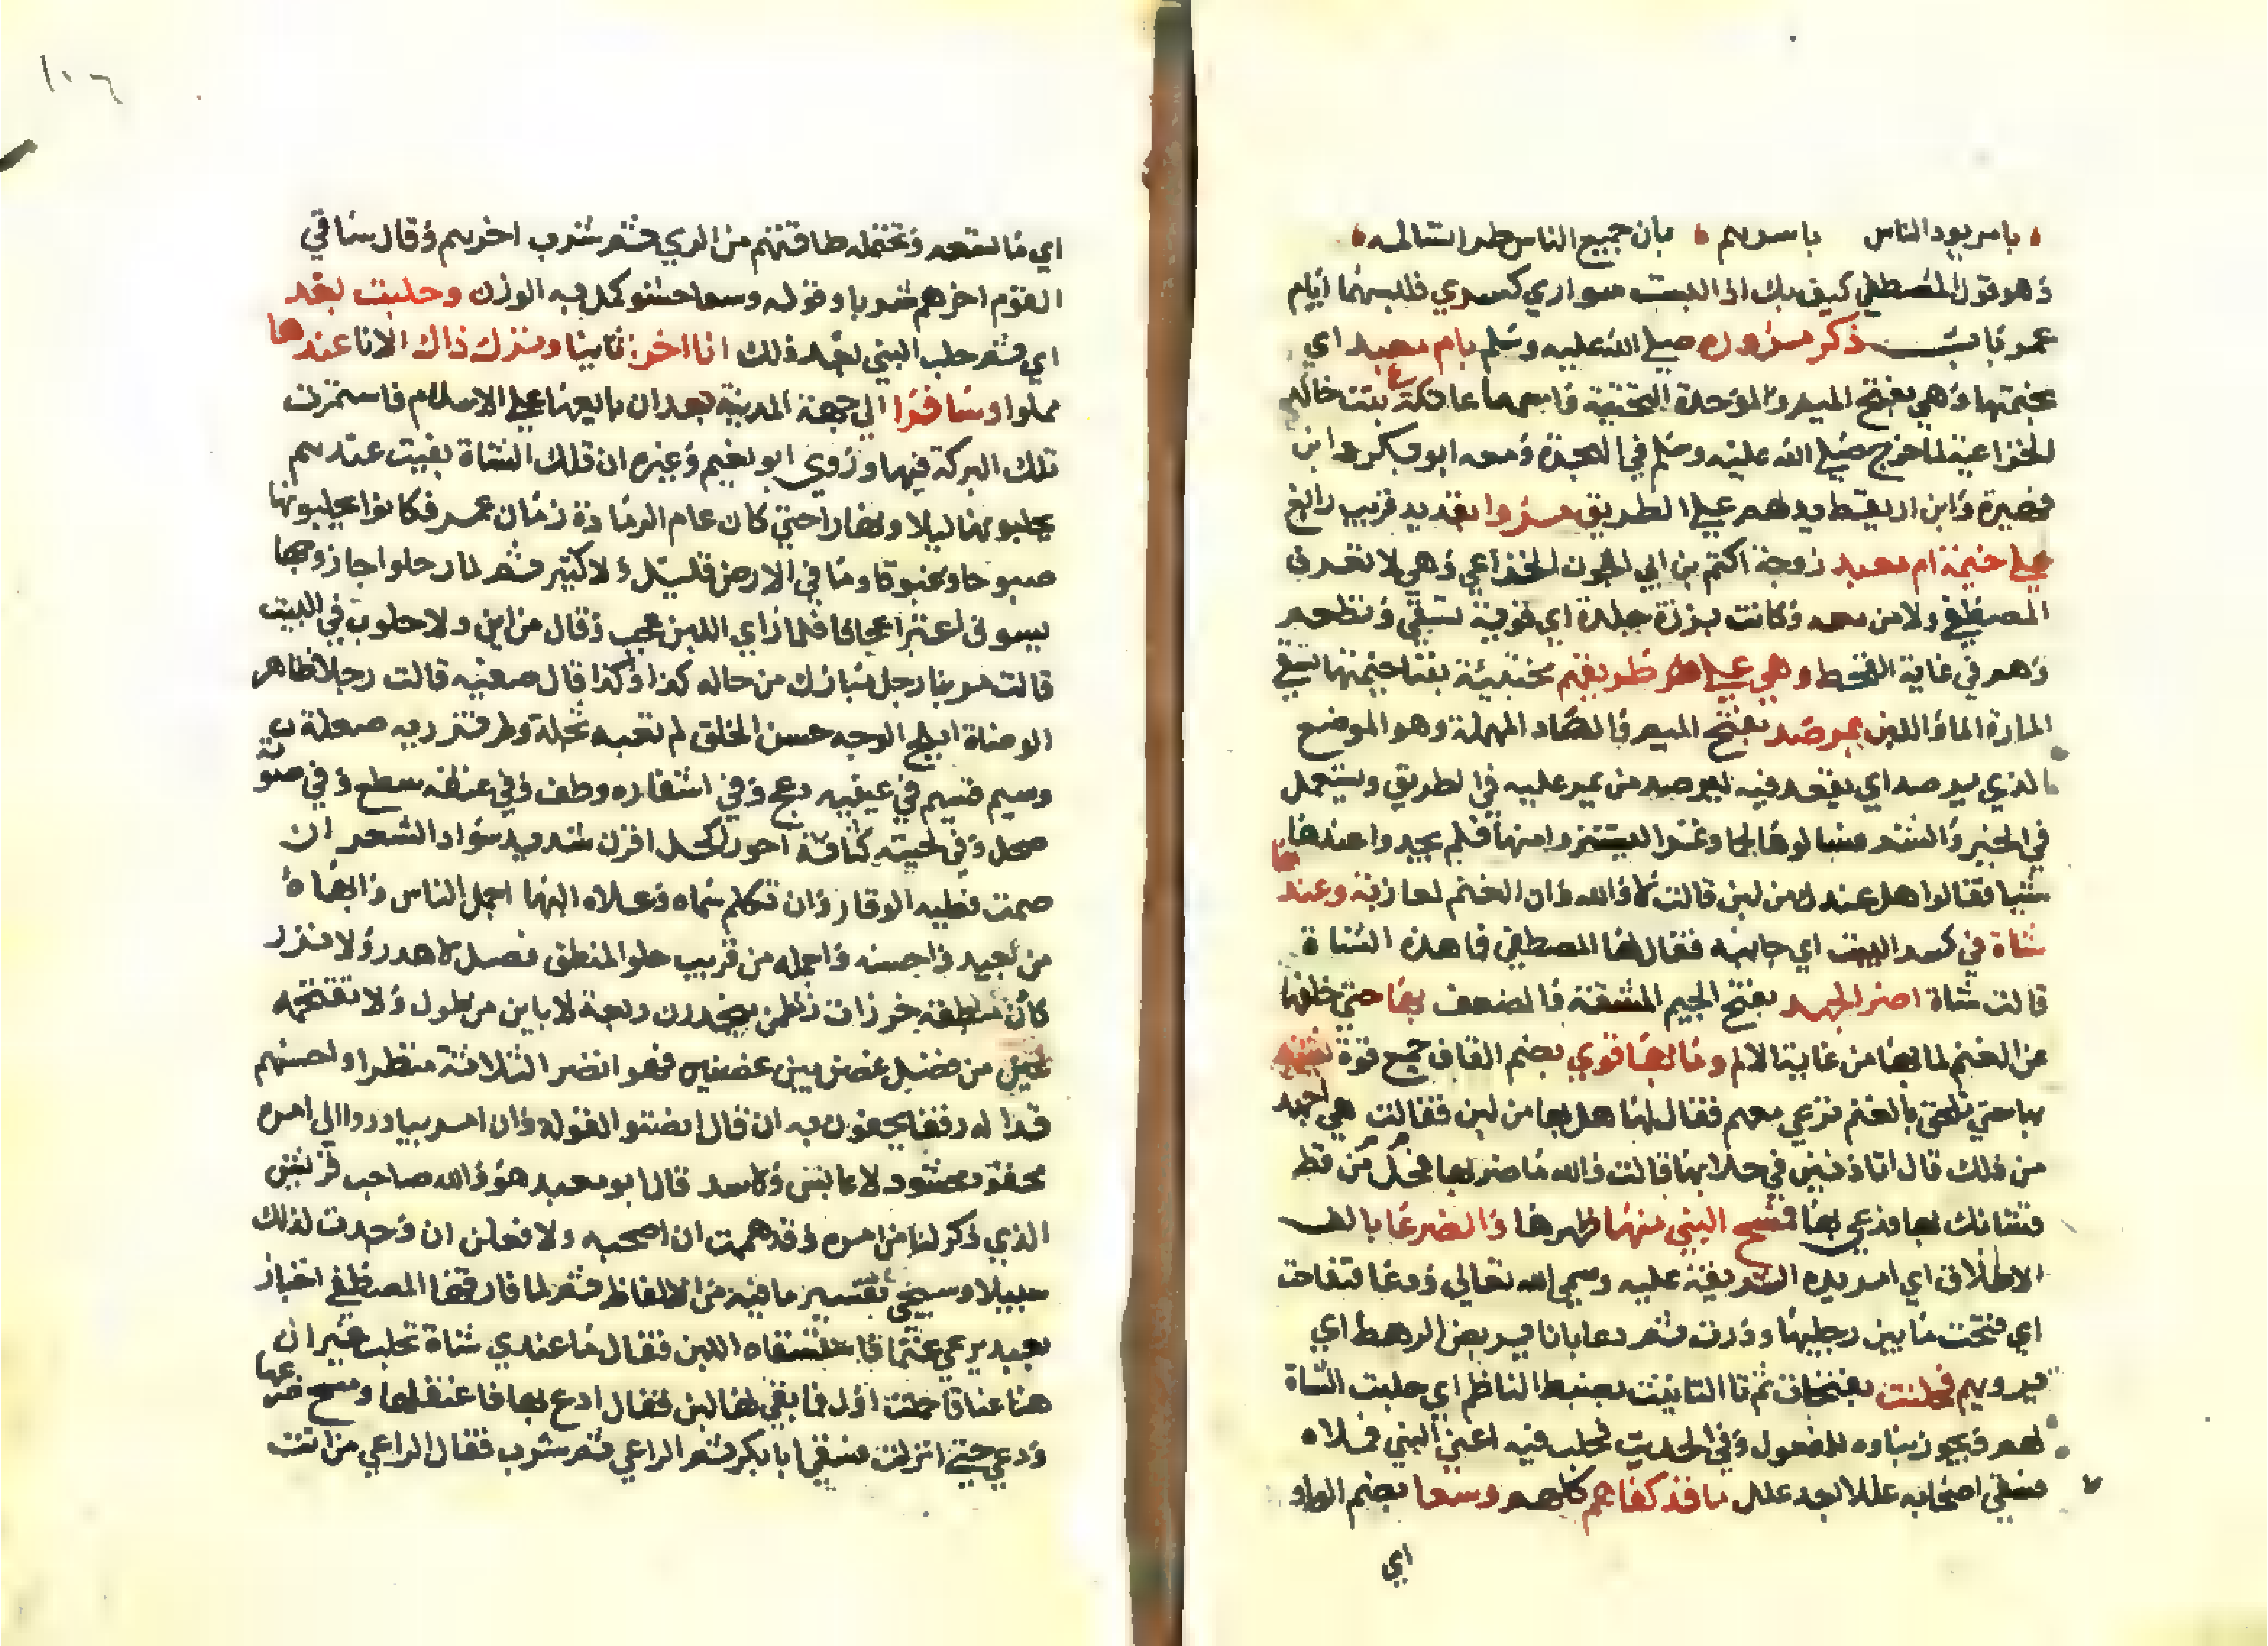 يا مر يود الناس يا سرهم بان جميع الناس طرا تسالمه
وهو قول المصطفى كيف بك اذا لبست سواري كسرى فلبسهما ايام
عمر ذكر مروره صلى الله عليه وسلم بام معبد اي
خيمتها وهي بفتح الميم والموحدة التحتية واسمها عاتكة بنت خالد
الخزاعية لما خرج صلى الله عليه وسلم في الهجرة ومعه ابو بكر وابن
فهيرة وابن اريقط يدلهم على الطريق مروا بقديد قريب رابغ
على خيمة ام معبد زوجة اكثم بن ابي الجون الخزاعي وهي لا تعرف
المصطفى ولا من معه وكانت برزة جلدة اي قوية تسقي وتطعم
وهم في غاية القحط وهي على طريقهم مختبية بفنا خيمتها تسقي
المارة الما واللبن بمرصد بفتح الميم والصاد المهملة وهو الموضع
الذي يرصد اي يقعد فيه ليرصد من يمر عليه في الطريق ويستعمل
في الخير والشر فسالوها لحما وتمرا ليشتروا منها فلم يجدوا عندها
شيا فقالوا هل عندك من لبن قالت لا والله وان الغنم لعازبة وعندها
شاة في كسر البيت اي جانبه فقال لها المصطفى ما هذه الشاة
قالت شاة اضر الجهد بفتح الجيم المشقة والضعف بها حتى خلفها
عن الغنم لما بها من غاية الالم وما بها قوي بضم القاف جمع قوة
بها حتى تلحق بالغنم ترعى معهم فقال لها هل بها من لبن فقالت هي اجهد
من ذلك قال اتاذنين في حلابها قالت والله ما ضربها فحل من قط
فشانك بها فدعي بها فمسح النبي منها ظهرها والضرعا بالف
الاطلاق اي امر يده الشريفة عليه وسمى الله تعالى ودعا فتفاجت
اي فتحت ما بين رجليها ودرت ثم دعا بانا يربض الرهط اي
يرويهم فحلبت بفتحات ثم تا التانيث بضبط الناظم اي حلبت الشاة
لهم ويجوز بناوه للمفعول وفي الحديث فحلب فيه اعني النبي فملاه
فسقى اصحابه عللا بعد علل ما قد كفاهم كلهم وسعا بضم الواو
اي
١٠٦
اي ما تسعه وتحتمله طاقتهم من الري ثم شرب اخرهم وقال ساقي
القوم اخرهم شربا وقوله وسعا حشو كمل به الوزن وحلبت بعد
اي ثم حلب النبي بعد ذلك انا اخر ثانيا وترك ذاك الانا عندها
مملوا وسافروا الى جهة المدينة بعد ان بايعها على الاسلام فاستمرت
تلك البركة فيها وروى ابو نعيم وغيره ان تلك الشاة بقيت عندهم
يحلبونها ليلا ونهارا حتى كان عام الرمادة زمان عمر فكانوا يحلبونها
صبوحا وغبوقا وما في الارض قليل ولا كثير ثم لما رحلوا جا زوجها
يسوق اعنزا عجافا فلما راى اللبن عجب وقال من اين ولا حلوب في البيت
قالت مر بنا رجل مبارك من حاله كذا وكذا قال صفيه قالت رجلا ظاهر
الوضاة ابلج الوجه حسن الخلق لم تعبه ثجلة ولم تزر به صعلة
وسيم قسيم في عينيه دعج وفي اشفاره وطف وفي عنقه سطع وفي صوته
صحل وفي لحيته كثاثة احور اكحل اقرن شديد سواد الشعر ان
صمت فعليه الوقار وان تكلم سماه وعلاه البها اجمل الناس وابهاه
من بعيد واحسنه واجمله من قريب حلو المنطق فصل لا هدر ولا نزر
كان منطقه خرزات نظم يتحدرن ربعة لا باين من طول ولا تقتحمه
عين من قصر غصن بين غصنين فهو انضر الثلاثة منظرا واحسنهم
قدرا له رفقا يحفون به ان قال انصتوا لقوله وان امر تبادروا الى امره
محفود محشود لا عابس ولا معتد قال ابو معبد هو والله صاحب قريش
الذي ذكر لنا من امره وقد هممت ان اصحبه ولافعلن ان وجدت لذلك
سبيلا وسيجي تفسير ما فيه من الالفاظ ثم لما فارقها المصطفى اجتاز
بعبد يرعى غنما فاستسقاه اللبن فقال ما عندي شاة تحلب غير ان
هنا عناقا حملت اول فما بقى لها لبن فقال ادع بها فاعتقلها ومسح ضرعها
ودعى حتى انزلت فسقى ابا بكر ثم الراعي ثم شرب فقال الراعي من انت